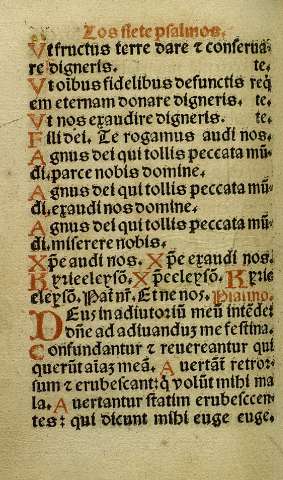 Los siete psalmos.
Ut fructus terre dare ⁊ conserua-
re digneris. te.
Ut oibus fidelibus defunctis req̄
em eternam donare digneris. te.
Ut nos exaudire digneris. te.
Fili dei. Te rogamus audi nos.
Agnus dei qui tollis peccata mū
di, parce nobis domine.
Agnus dei qui tollis peccata mū
di, exaudi nos domine.
Agnus dei qui tollis peccata mū
di, miserere nobis.
Xp̄e audi nos. Xp̄e exaudi nos.
Kyrieeleysō. Xp̄eeleysō. Kyrie
eleysō. Pat̄ nr̄. Et ne nos. Psalmo.
DEus in adiutoriū meū intēde:
dn̄e ad adiuuanduz me festina.
Confundantur ⁊ reuereantur qui
querūt aīaz meā. Auertāt̄ retror-
sum ⁊ erubescant: q̄ volūt mihi ma
la. Auertantur statim erubescen-
tes: qui dicunt mihi euge euge.